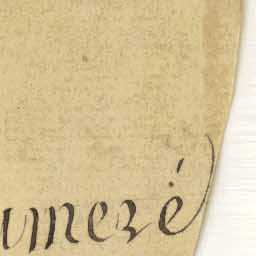 umeré